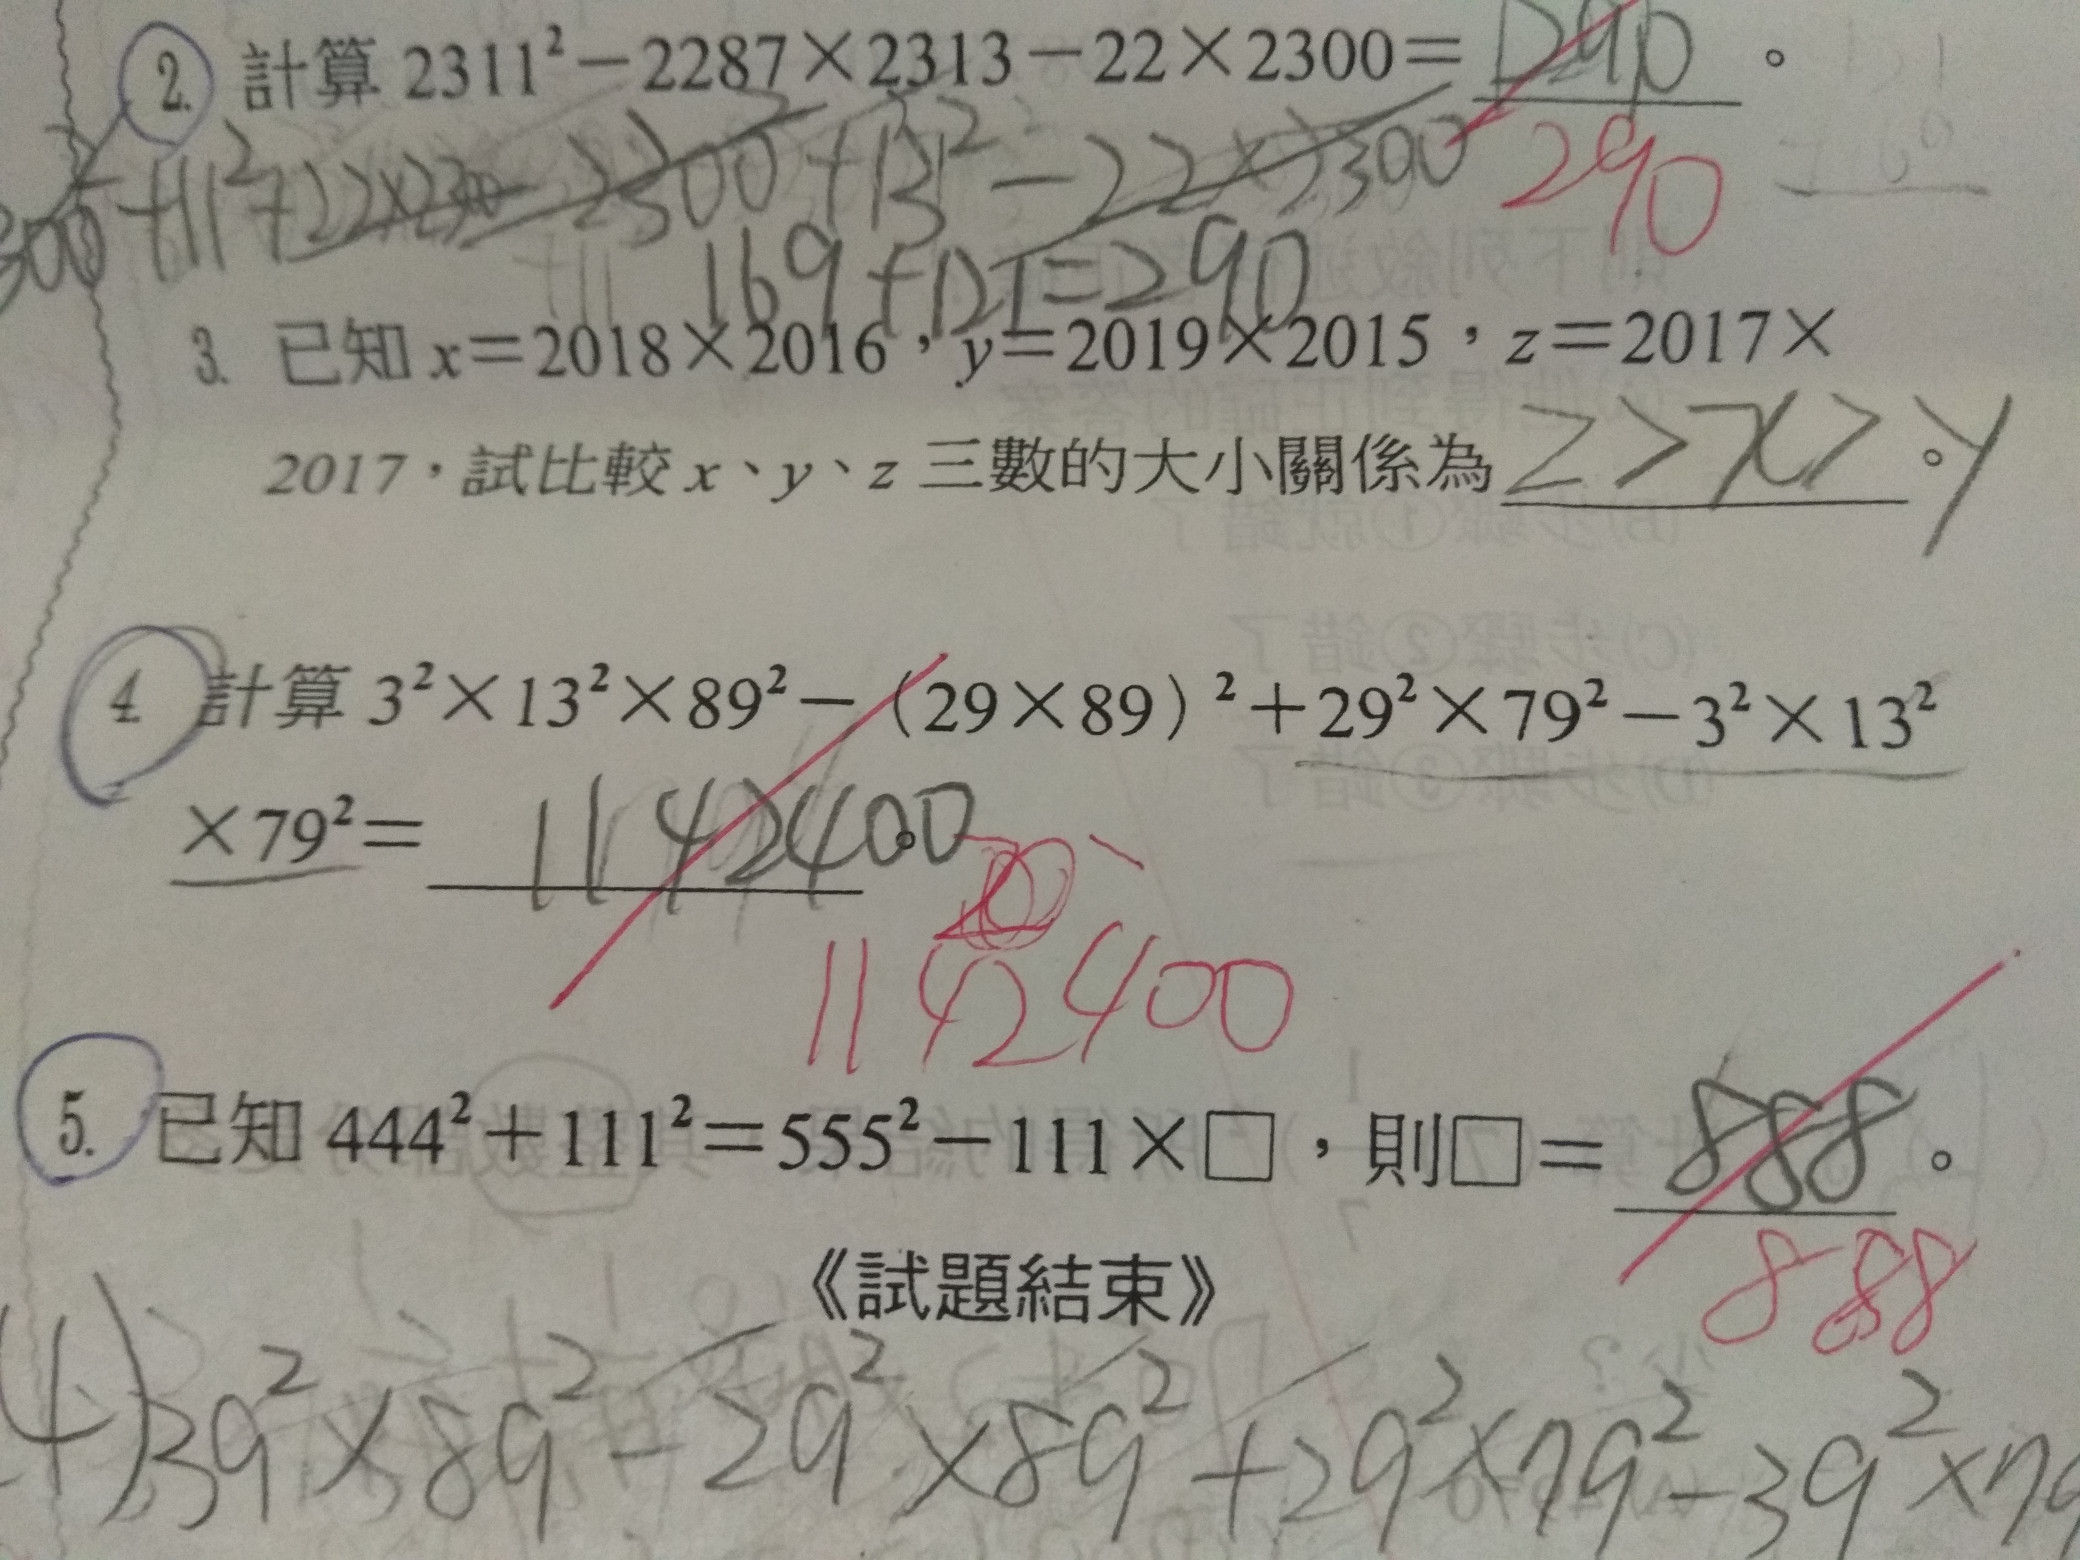 2. 計算 2311²－2287×2313－22×2300＝ 1290 。
300² +11²+22×2300－2300²+13²－22×2300
290
169+121=290
3. 已知 x＝2018×2016，y＝2019×2015，z＝2017×
2017，試比較 x、y、z 三數的大小關係為 z>x>y 。
4. 計算 3²×13²×89²－（29×89）²＋29²×79²－3²×13²
×79²＝ 1142400 。
1142400
5. 已知 444²＋111²＝555²－111×□，則□＝ 888 。
888
《試題結束》
4)39²×89²－29²×89²+29²×79²－39²×79